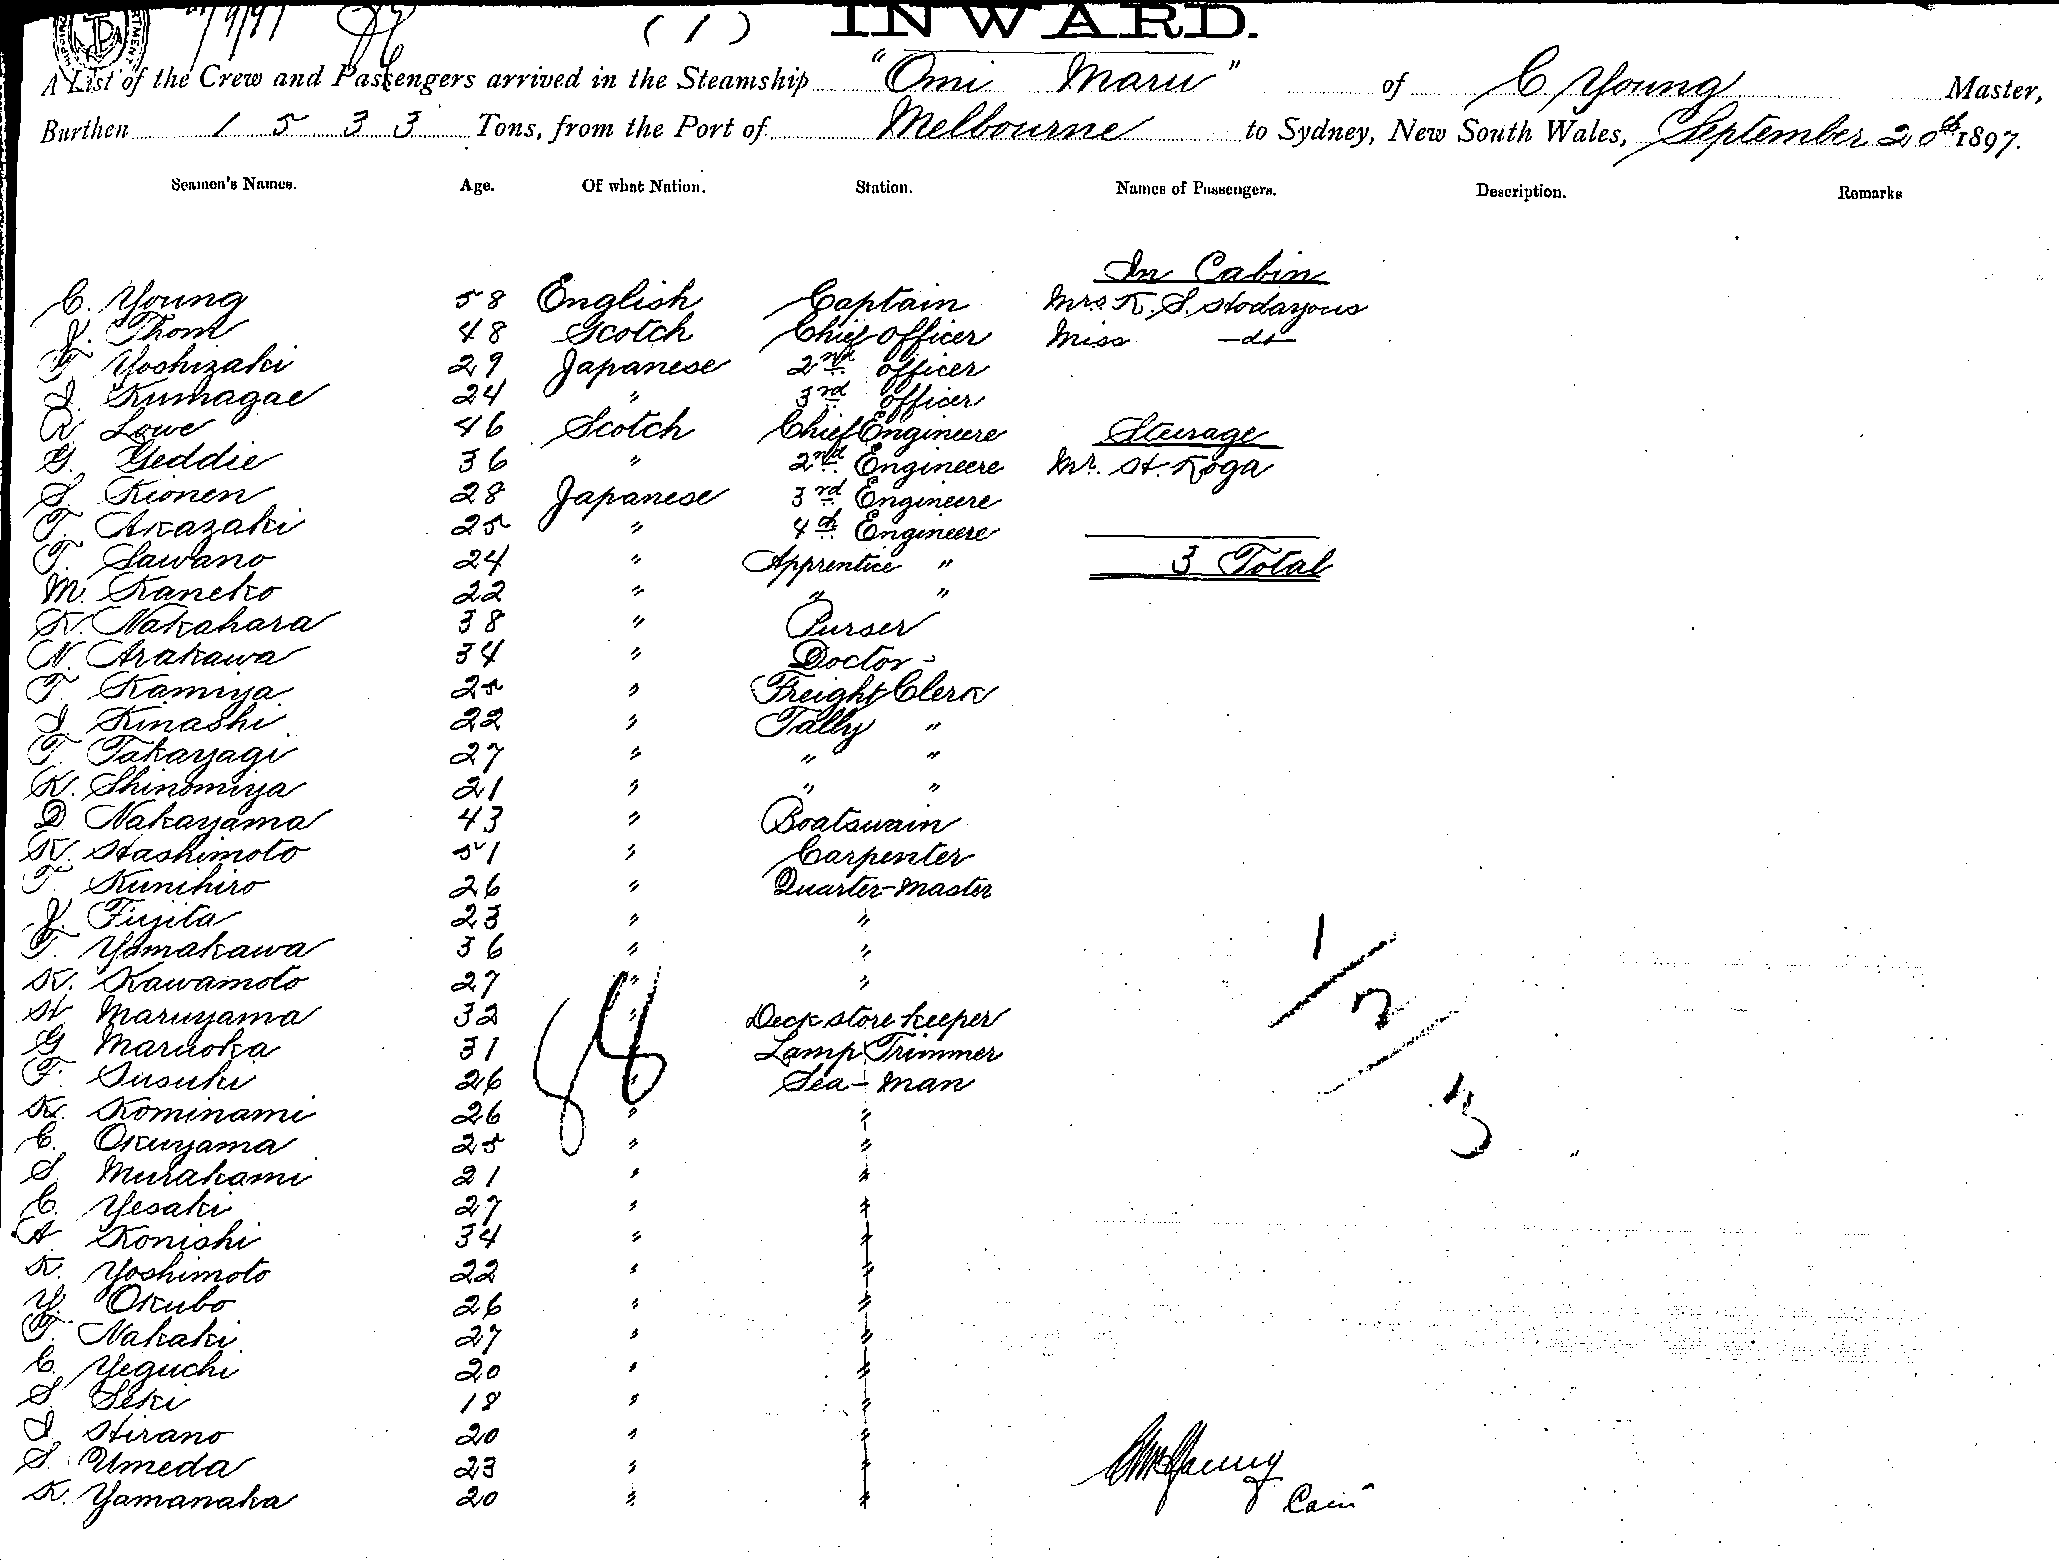 (1) INWARD.
A List of the Crew and Passengers arrived in the Steamship "Omi Maru" of C Young Master,
Burthen 1533 Tons, from the Port of Melbourne to Sydney, New South Wales, September 20th 1897.
Seamen's Names. Age. Of what Nation. Station. Names of Passengers. Description. Remarks
In Cabin
C. Young 58 English Captain Mrs K. S. Hodayous
J. Thom 48 Scotch Chief officer Miss -do-
T Yoshizaki 29 Japanese 2nd officer
I. Kumagae 24 " 3rd officer
R Lowe 46 Scotch Chief Engineere Steurage
G. Geddie 36 " 2nd Engineere Mr. H. Koga
S Kionen 28 Japanese 3rd Engineere
T. Akazaki 25 " 4th Engineere
T. Sawano 24 " Apprentice " 3 Total
M. Kaneko 22 " " "
K. Nakahara 38 " Purser
N. Arakawa 34 " Doctor
T. Kamiya 25 " Freight Clerk
I Kinashi 22 " Tally "
T. Takayagi 27 " " "
K. Shinomiya 21 " " "
D Nakayama 43 " Boatswain
K. Hashimoto 51 " Carpenter
T. Kunihiro 26 " Quarter-master
J. Fujita 23 " "
T. Yamakawa 36 " "
K. Kawamoto 27 " "
H Maruyama 32 " Deck store keeper
G Maruoka 31 " Lamp Trimmer
F. Susuki 26 " Sea-man
K. Kominami 26 " "
C. Okuyama 25 " "
S. Murakami 21 " "
C. Yesaki 27 " "
A Konishi 34 " "
K. Yoshimoto 22 " "
Y. Okubo 26 " "
T. Nakaki 27 " "
C. Yeguchi 20 " "
S. Seki 18 " "
I Hirano 20 " "
S. Umeda 23 " "
K. Yamanaka 20 " "
1/2/3